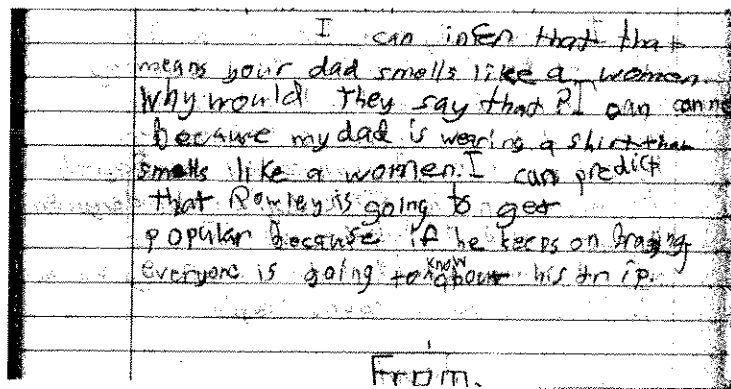 I can infer that that
means your dad smells like a women
Why would they say that? I can conne
because my dad is wearing a shirt that
smells like a women. I can predict
that Rowley is going to get
popular because if he keeps on braging
everyone is going to know about his trip.
From,